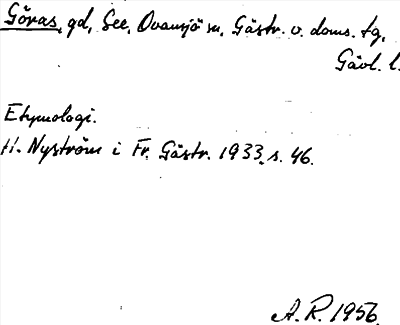 Göras, gd, See, Ovansjö sn, Gästr. v. doms. tg,
Gävl. l.
Etymologi.
H. Nyström i Fr. Gästr. 1933, s. 46.
A. R. 1956.